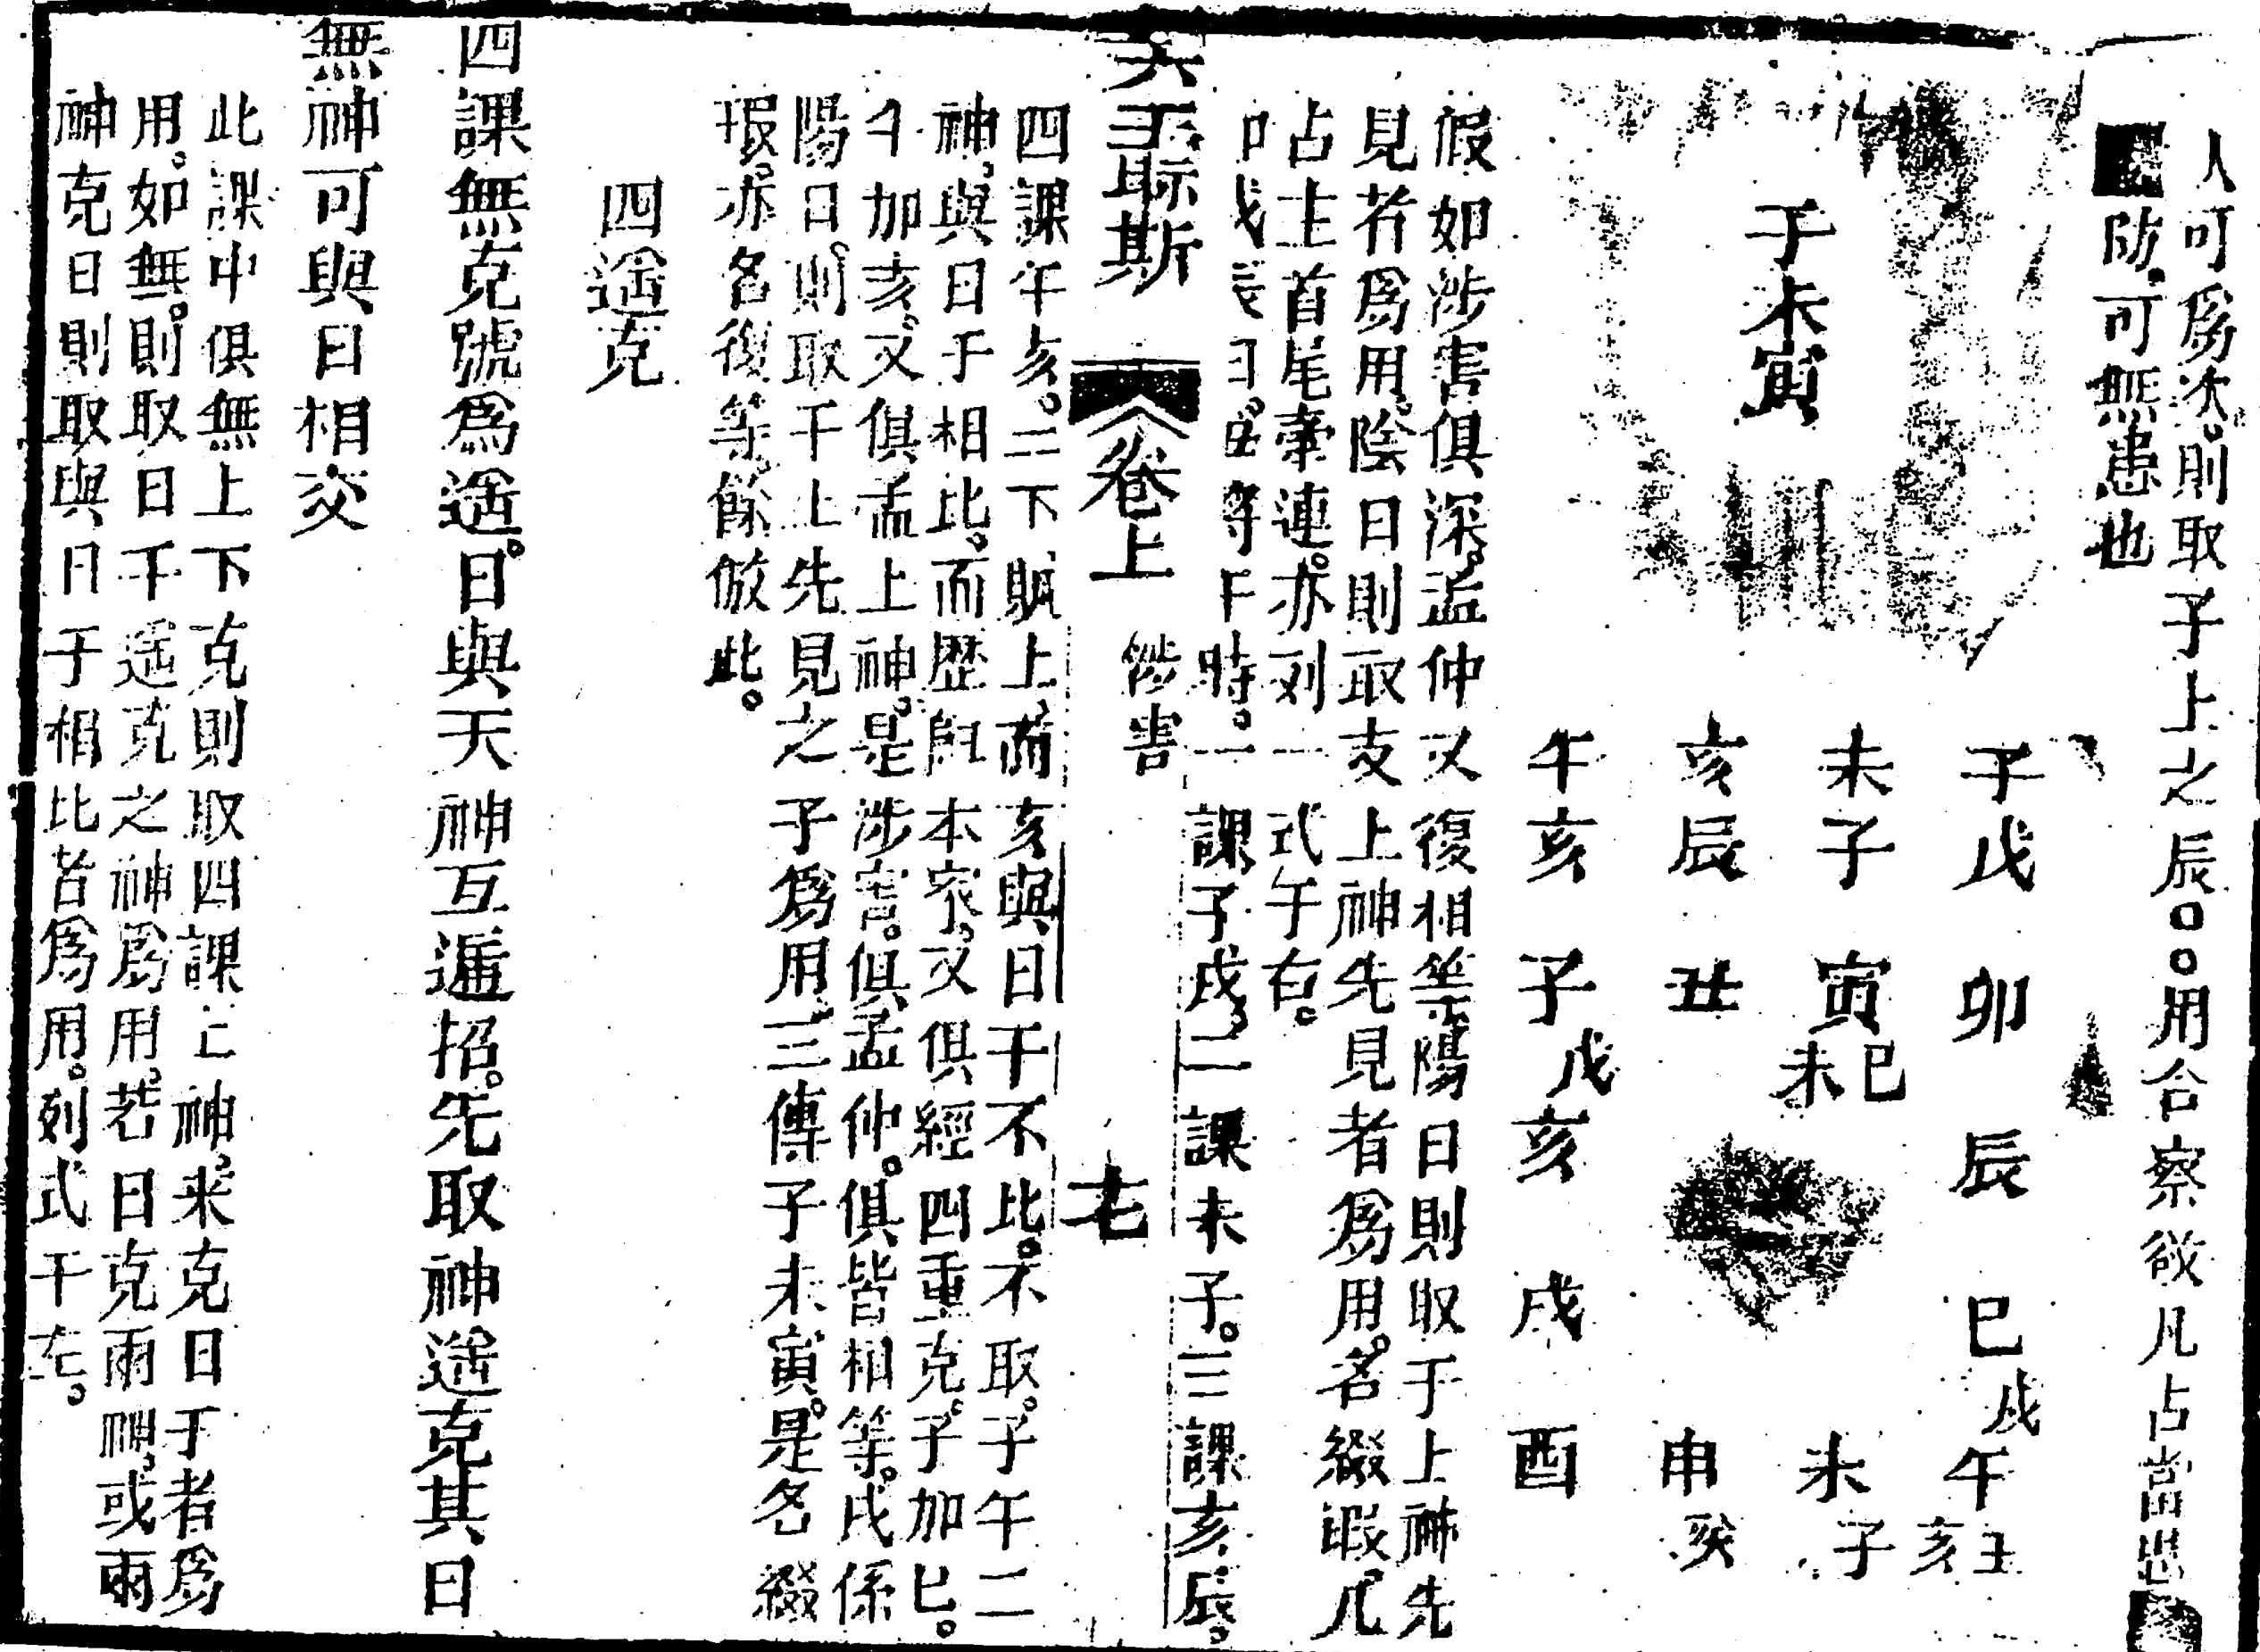 人可爲次。則取子上之辰。用合察微凡占當思
防。可無患也
子未寅
子戊　卯　辰　巳戌　午
未子　寅巳未　未子　亥
亥辰　丑　申
午亥　子戊亥　戌　酉
假如涉害俱深。孟仲又復相等陽日則取干上神先
見者爲用。陰日則取支上神先見者爲用。名綴瑕凡
占主首尾牽連。亦列一式于右。
戊辰日。等午時。一課子戊。二課未子。三課亥辰。
大六壬聊斯　卷上　涉害　七
四課午亥。三下賊上。而亥與日干不比。不取。子午二
神。與日干相比。而歴歸本家。又俱經四重克。子加巳。
午加亥。又俱孟上神。是涉害。俱孟仲。俱皆相等。戊係
陽日。則取干上先見之子爲用。三傳子未寅。是名綴
瑕。亦名復等。餘倣此。
四遥克
四課無克號爲遥。日與天神互遞招。先取神遥克其日
無神可與日相交
此課中俱無上下克則取四課上神。來克日干者爲
用。如無。則取日干遥克之神爲用。若日克兩神。或兩
神克日則取與日干相比者爲用。列式于左。